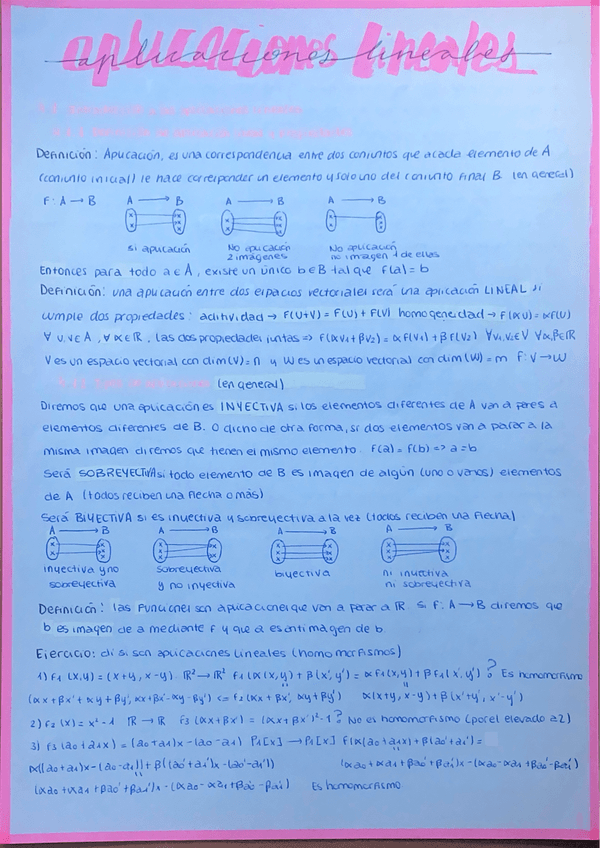 aplicaciones lineales
Definición: Aplicación, es una correspondencia entre dos conjuntos que a cada elemento de A
(conjunto inicial) le hace corresponder un elemento y solo uno del conjunto final B (en general)
F: A → B A → B A → B A → B
Si aplicación No aplicación No aplicación
2 imágenes no imagen 1 de ellas
Entonces para todo a ∈ A, existe un único b ∈ B tal que f(a) = b
Definición: una aplicación entre dos espacios vectoriales será una aplicación LINEAL si
cumple dos propiedades: aditividad → F(U+V) = F(U) + F(V) homogeneidad → F(αU) = αF(U)
∀ u,v ∈ A, ∀ α ∈ ℝ, las dos propiedades juntas => F(αV₁ + βV₂) = αF(V₁) + βF(V₂) ∀V₁,V₂ ∈ V ∀α,β ∈ ℝ
V es un espacio vectorial con dim(V) = n y W es un espacio vectorial con dim(W) = m F: V → W
(en general)
Diremos que una aplicación es INYECTIVA si los elementos diferentes de A van a parar a
elementos diferentes de B. O dicho de otra forma, si dos elementos van a parar a la
misma imagen diremos que tienen el mismo elemento. f(a) = f(b) => a = b
Será SOBREYECTIVA si todo elemento de B es imagen de algún (uno o varios) elementos
de A (todos reciben una flecha o más)
Será BIYECTIVA si es inyectiva y sobreyectiva a la vez (todos reciben una flecha)
A → B A → B A → B A → B
inyectiva y no sobreyectiva biyectiva ni inyectiva
sobreyectiva y no inyectiva ni sobreyectiva
Definición: las funciones son aplicaciones que van a parar a ℝ. Si f: A → B diremos que
b es imagen de a mediante f y que a es antimagen de b.
Ejercicio: di si son aplicaciones lineales (homomorfismos)
1) f₁ (x,y) = (x+y, x-y) ℝ² → ℝ² f₁(α(x,y) + β(x',y') = αf₁(x,y) + βf₁(x',y')? Es homomorfismo
(αx + βx' + αy + βy', αx + βx' - αy - βy') <= f₂(αx + βx', αy + βy') α(x+y, x-y) + β(x'+y', x'-y')
2) f₂(x) = x² - 1 ℝ → ℝ f₃(αx + βx') = (αx + βx')² - 1? No es homomorfismo (por el elevado a 2)
3) f₃(a₀ + a₁x) = (a₀ + a₁)x - (a₀ - a₁) P₁[x] → P₁[x] f(α(a₀ + a₁x) + β(a₀' + a₁') =
α((a₀ + a₁)x - (a₀ - a₁)) + β((a₀' + a₁')x - (a₀' - a₁')) (αa₀ + αa₁ + βa₀' + βa₁')x - (αa₀ - αa₁ + βa₀' - βa₁')
(αa₀ + αa₁ + βa₀' + βa₁')x - (αa₀ - αa₁ + βa₀' - βa₁') Es homomorfismo